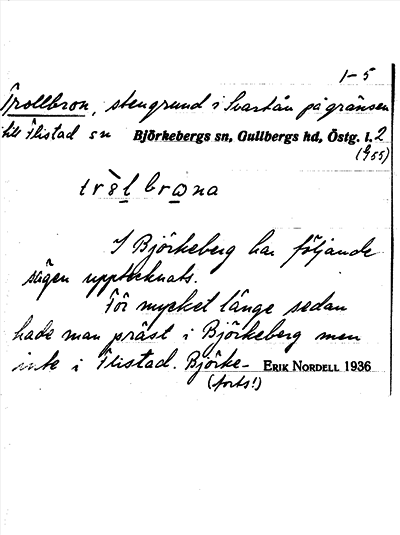 1-5
Trollbron, stengrund i Svartån på gränsen
till Flistad sn Björkebergs sn, Gullbergs hd, Östg. l. 2
(G 55)
tròl bròna
I Björkeberg har följande
sägen upptecknats.
För mycket länge sedan
hade man präst i Björkeberg men
inte i Flistad. Björke- ERIK NORDELL 1936
(forts!)